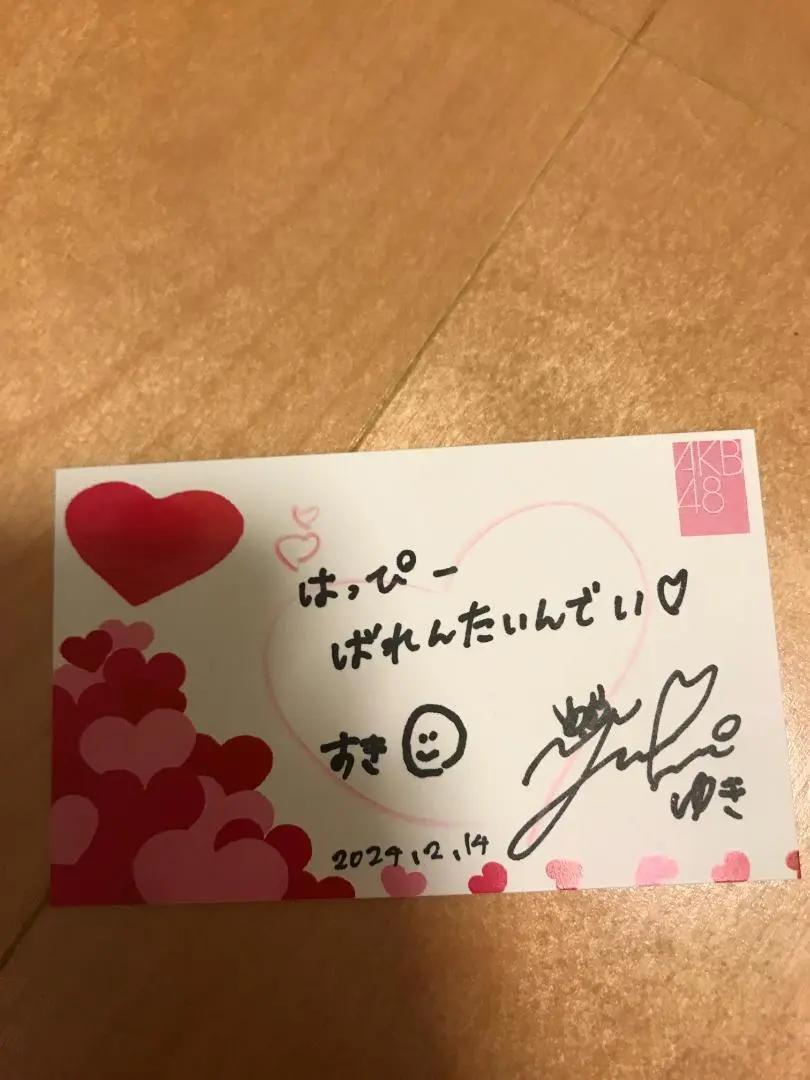 AKB
48
はっぴー
ばれんたいんでい♡
すき
Yuki
ゆき
2024.2.14